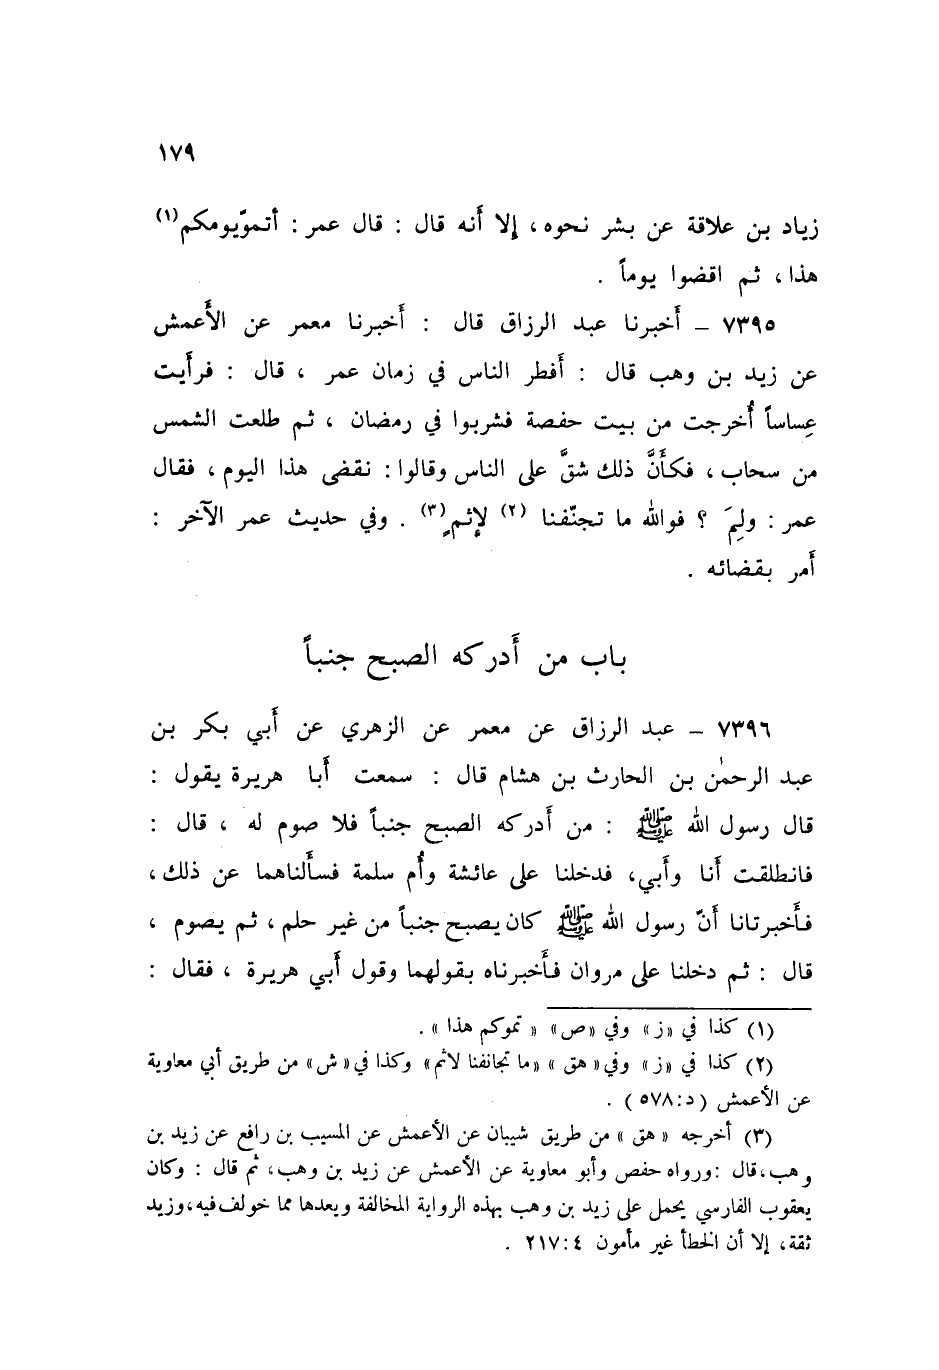 ١٧٩
زياد بن علاقة عن بشر نحوه ، إلا أَنه قال : قال عمر : أتموّيومكم(١)
هذا ، ثم اقضوا يوماً .
٧٣٩٥ – أَخبرنا عبد الرزاق قال : أَخبرنا معمر عن الأَعمش
عن زيد بن وهب قال : أَفطر الناس في زمان عمر ، قال : فرأَيت
عِساساً أُخرجت من بيت حفصة فشربوا في رمضان ، ثم طلعت الشمس
من سحاب ، فكأَنَّ ذلك شقَّ على الناس وقالوا : نقضي هذا اليوم ، فقال
عمر : ولِمَ ؟ فوالله ما تجنّفنا (٢) لإِثمٍ(٣) . وفي حديث عمر الآخر :
أَمر بقضائه .
باب من أَدركه الصبح جنباً
٧٣٩٦ – عبد الرزاق عن معمر عن الزهري عن أَبي بكر بن
عبد الرحمٰن بن الحارث بن هشام قال : سمعت أَبا هريرة يقول :
قال رسول الله ﷺ : من أَدركه الصبح جنباً فلا صوم له ، قال :
فانطلقت أَنا وأَبي، فدخلنا على عائشة وأُم سلمة فسأَلناهما عن ذلك ،
فأَخبرتانا أَنّ رسول الله ﷺ كان يصبح جنباً من غير حلم ، ثم يصوم ،
قال : ثم دخلنا على مروان فأَخبرناه بقولهما وقول أَبي هريرة ، فقال :
(١) كذا في «ز» وفي «ص» « تموكم هذا » .
(٢) كذا في «ز» وفي« هق » «ما تجانفنا لاثم» وكذا في« ش» من طريق أبي معاوية
عن الأعمش ( د:٥٧٨ ) .
(٣) أخرجه « هق » من طريق شيبان عن الأعمش عن المسيب بن رافع عن زيد بن
وهب،قال :ورواه حفص وأبو معاوية عن الأعمش عن زيد بن وهب، ثم قال : وكان
يعقوب الفارسي يحمل على زيد بن وهب بهذه الرواية المخالفة ويعدها مما خولف فيه،وزيد
ثقة، إلا أن الخطأ غير مأمون ٤:٢١٧ .